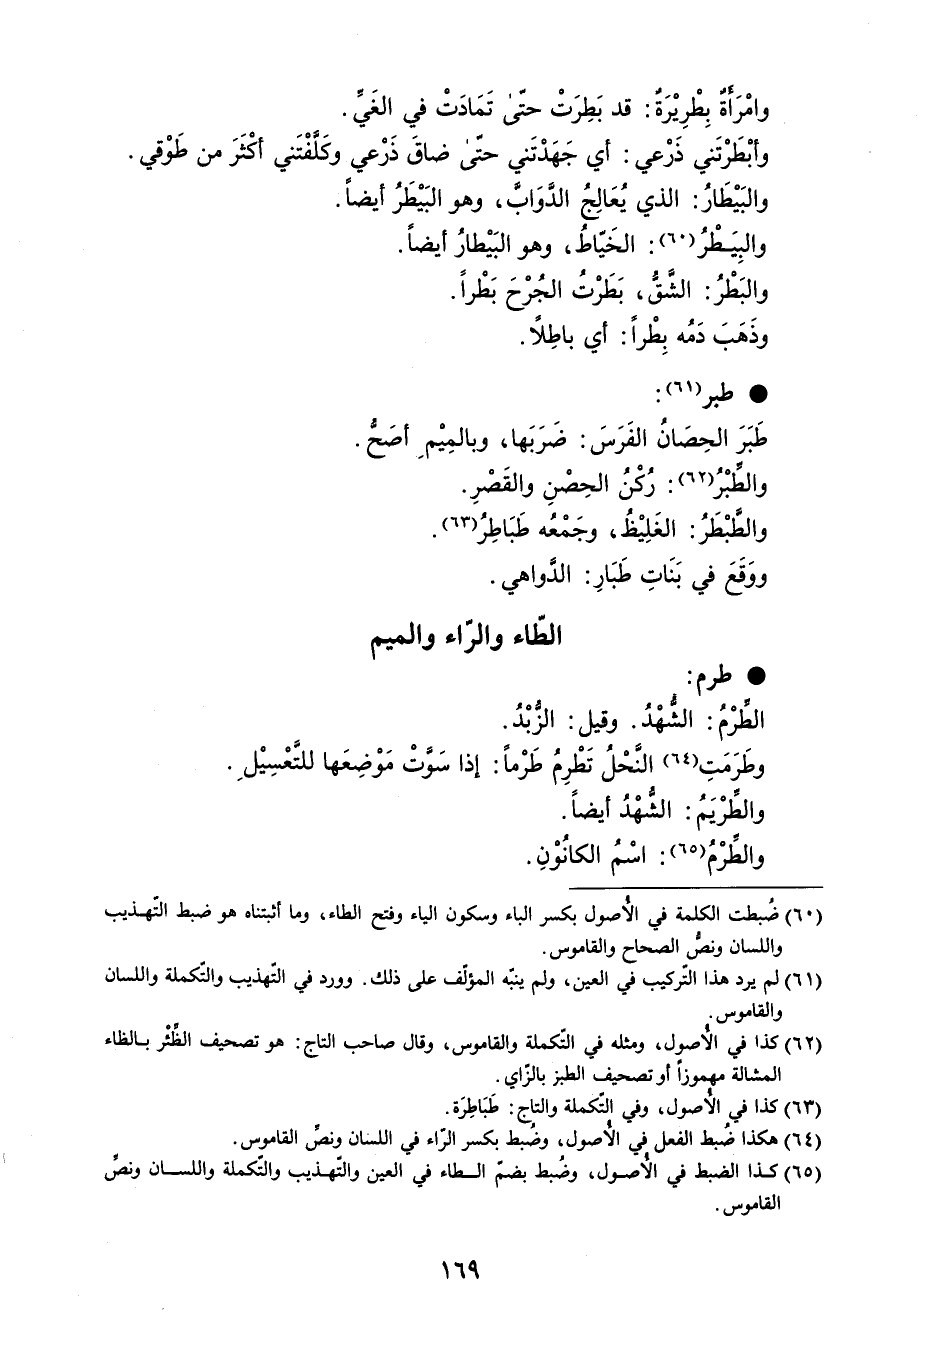 وامْرَأَةٌ بِطْرِيْرَةٌ: قد بَطِرَتْ حتّىٰ تَمَادَتْ في الغَيِّ.
وأبْطَرْتَني ذَرْعي: أي جَهَدْتَني حتّىٰ ضاقَ ذَرْعي وكَلَّفْتَني أكْثَرَ من طَوْقي.
والبَيْطَارُ: الذي يُعَالِجُ الدَّوَابَّ، وهو البَيْطَرُ أيضاً.
والبِيَـطْرُ(٦٠): الخَيّاطُ، وهو البَيْطارُ أيضاً.
والبَطْرُ: الشَّقُّ، بَطَرْتُ الجُرْحَ بَطْراً.
وذَهَبَ دَمُه بِطْراً: أي باطِلًا.
● طبر(٦١):
طَبَرَ الحِصَانُ الفَرَسَ: ضَرَبَها، وبالمِيْمِ أصَحُّ.
والطِّبْرُ(٦٢): رُكْنُ الحِصْنِ والقَصْرِ.
والطَّبْطَرُ: الغَلِيْظُ، وجَمْعُه طَبَاطِرُ(٦٣).
ووَقَعَ في بَنَاتِ طَبَارِ: الدَّواهي.
الطّاء والرّاء والميم
● طرم:
الطِّرْمُ: الشُّهْدُ. وقيل: الزُّبْدُ.
وطَرَمَتِ(٦٤) النَّحْلُ تَطْرِمُ طَرْماً: إذا سَوَّتْ مَوْضِعَها للتَّعْسِيْلِ.
والطِّرْيَمُ: الشُّهْدُ أيضاً.
والطِّرْمُ(٦٥): اسْمُ الكانُوْنِ.
(٦٠) ضُبطت الكلمة في الأُصول بكسر الباء وسكون الياء وفتح الطاء، وما أثبتناه هو ضبط التّهـذيب
واللسان ونصُّ الصحاح والقاموس.
(٦١) لم يرد هذا التّركيب في العين، ولم ينبّه المؤلّف على ذلك. وورد في التّهذيب والتّكملة واللسان
والقاموس.
(٦٢) كذا في الأُصول، ومثله في التّكملة والقاموس، وقال صاحب التاج: هو تصحيف الظِّئْر بـالظاء
المشالة مهموزاً أو تصحيف الطبز بالزّاي.
(٦٣) كذا في الأُصول، وفي التّكملة والتاج: طَبَاطِرَة.
(٦٤) هكذا ضُبط الفعل في الأُصول، وضُبط بكسر الرّاء في اللسان ونصِّ القاموس.
(٦٥) كـذا الضبط في الأُصـول، وضُبط بضمّ الـطاء في العين والتّهـذيب والتّكملة واللسـان ونصِّ
القاموس.
١٦٩